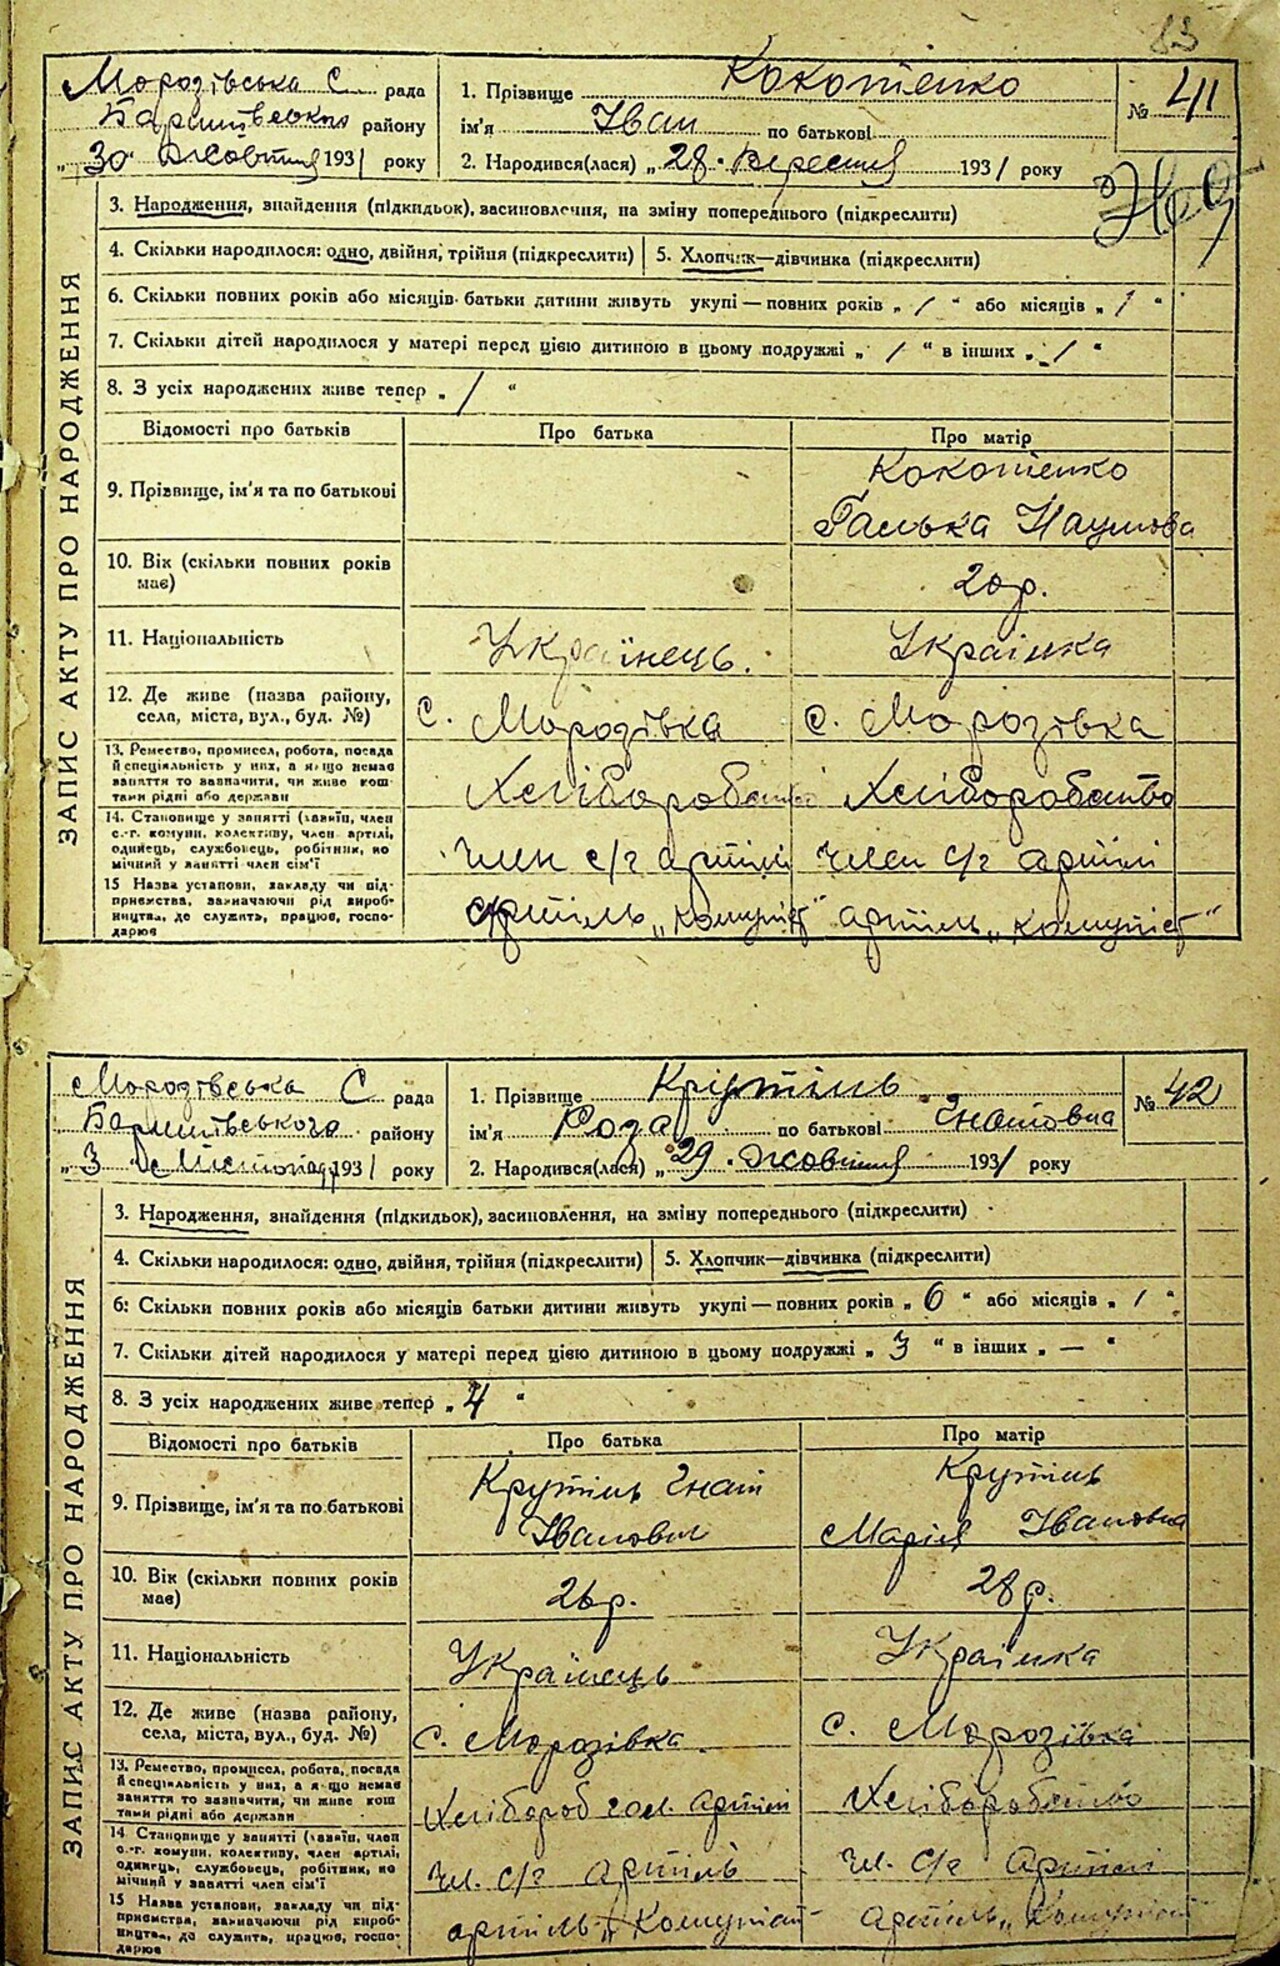 83
Морозівська С рада
Баришівського району
„30" Жовтня 1931 року
1. Прізвище Кокотенко
ім'я Іван по батькові
2. Народився(лася) „28" Вересня 1931 року
№ 411
ЗАПИС АКТУ ПРО НАРОДЖЕННЯ
3. Народження, знайдення (підкидьок), засиновлення, на зміну попереднього (підкреслити)
4. Скільки народилося: одно, двійня, трійня (підкреслити)
5. Хлопчик—дівчинка (підкреслити)
6. Скільки повних років або місяців батьки дитини живуть укупі — повних років „ / " або місяців „ 1 "
7. Скільки дітей народилося у матері перед цією дитиною в цьому подружжі „ / " в інших „ / "
8. З усіх народжених живе тепер „ / "
Відомості про батьків
Про батька
Про матір
9. Прізвище, ім'я та по батькові
Кокотенко
Галька Наумова
10. Вік (скільки повних років має)
20 р.
11. Національність
Українець.
Українка
12. Де живе (назва району,
села, міста, вул., буд. №)
с. Морозівка
с. Морозівка
13. Ремество, промисел, робота, посада
й спеціяльність у них, а якщо немає
заняття то зазначити, чи живе кош-
тами рідні або держави
Хліборобство
Хліборобство
14. Становище у занятті (хазяїн, член
с.-г. комуни, колективу, член артілі,
одинець, службовець, робітник, по
мічний у занятті член сім'ї
член с/г артілі
член с/г артілі
15 Назва установи, закладу чи під-
приємства, зазначаючи рід вироб-
ництва, де служить, працює, госпо-
дарює
артіль „Комуніст"
артіль „Комуніст"
Морозівська С рада
Баришівського району
„3" Листопада 1931 року
1. Прізвище Крутінь
ім'я Роза по батькові Гнатовна
2. Народився(лася) „29" Жовтня 1931 року
№ 42
ЗАПИС АКТУ ПРО НАРОДЖЕННЯ
3. Народження, знайдення (підкидьок), засиновлення, на зміну попереднього (підкреслити)
4. Скільки народилося: одно, двійня, трійня (підкреслити)
5. Хлопчик—дівчинка (підкреслити)
6: Скільки повних років або місяців батьки дитини живуть укупі — повних років „ 6 " або місяців „ 1 "
7. Скільки дітей народилося у матері перед цією дитиною в цьому подружжі „ 3 " в інших „ — "
8. З усіх народжених живе тепер „ 4 "
Відомості про батьків
Про батька
Про матір
9. Прізвище, ім'я та по батькові
Крутінь Гнат
Іванович
Крутінь
Марія Івановна
10. Вік (скільки повних років має)
26 р.
28 р.
11. Національність
Українець
Українка
12. Де живе (назва району,
села, міста, вул., буд. №)
с. Морозівка
с. Морозівка
13. Ремество, промисел, робота, посада
й спеціяльність у них, а якщо немає
заняття то зазначити, чи живе кош
тами рідні або держави
Хлібороб гол. артілі
Хліборобство
14 Становище у занятті (хазяїн, член
с.-г. комуни, колективу, член артілі,
одинець, службовець, робітник, по
мічний у занятті член сім'ї
чл. с/г артіль
чл. с/г артілі
15 Назва установи, закладу чи під-
приємства, зазначаючи рід вироб-
ництва, де служить, працює, госпо-
дарює
артіль „Комуніст
артіль „Комуніст